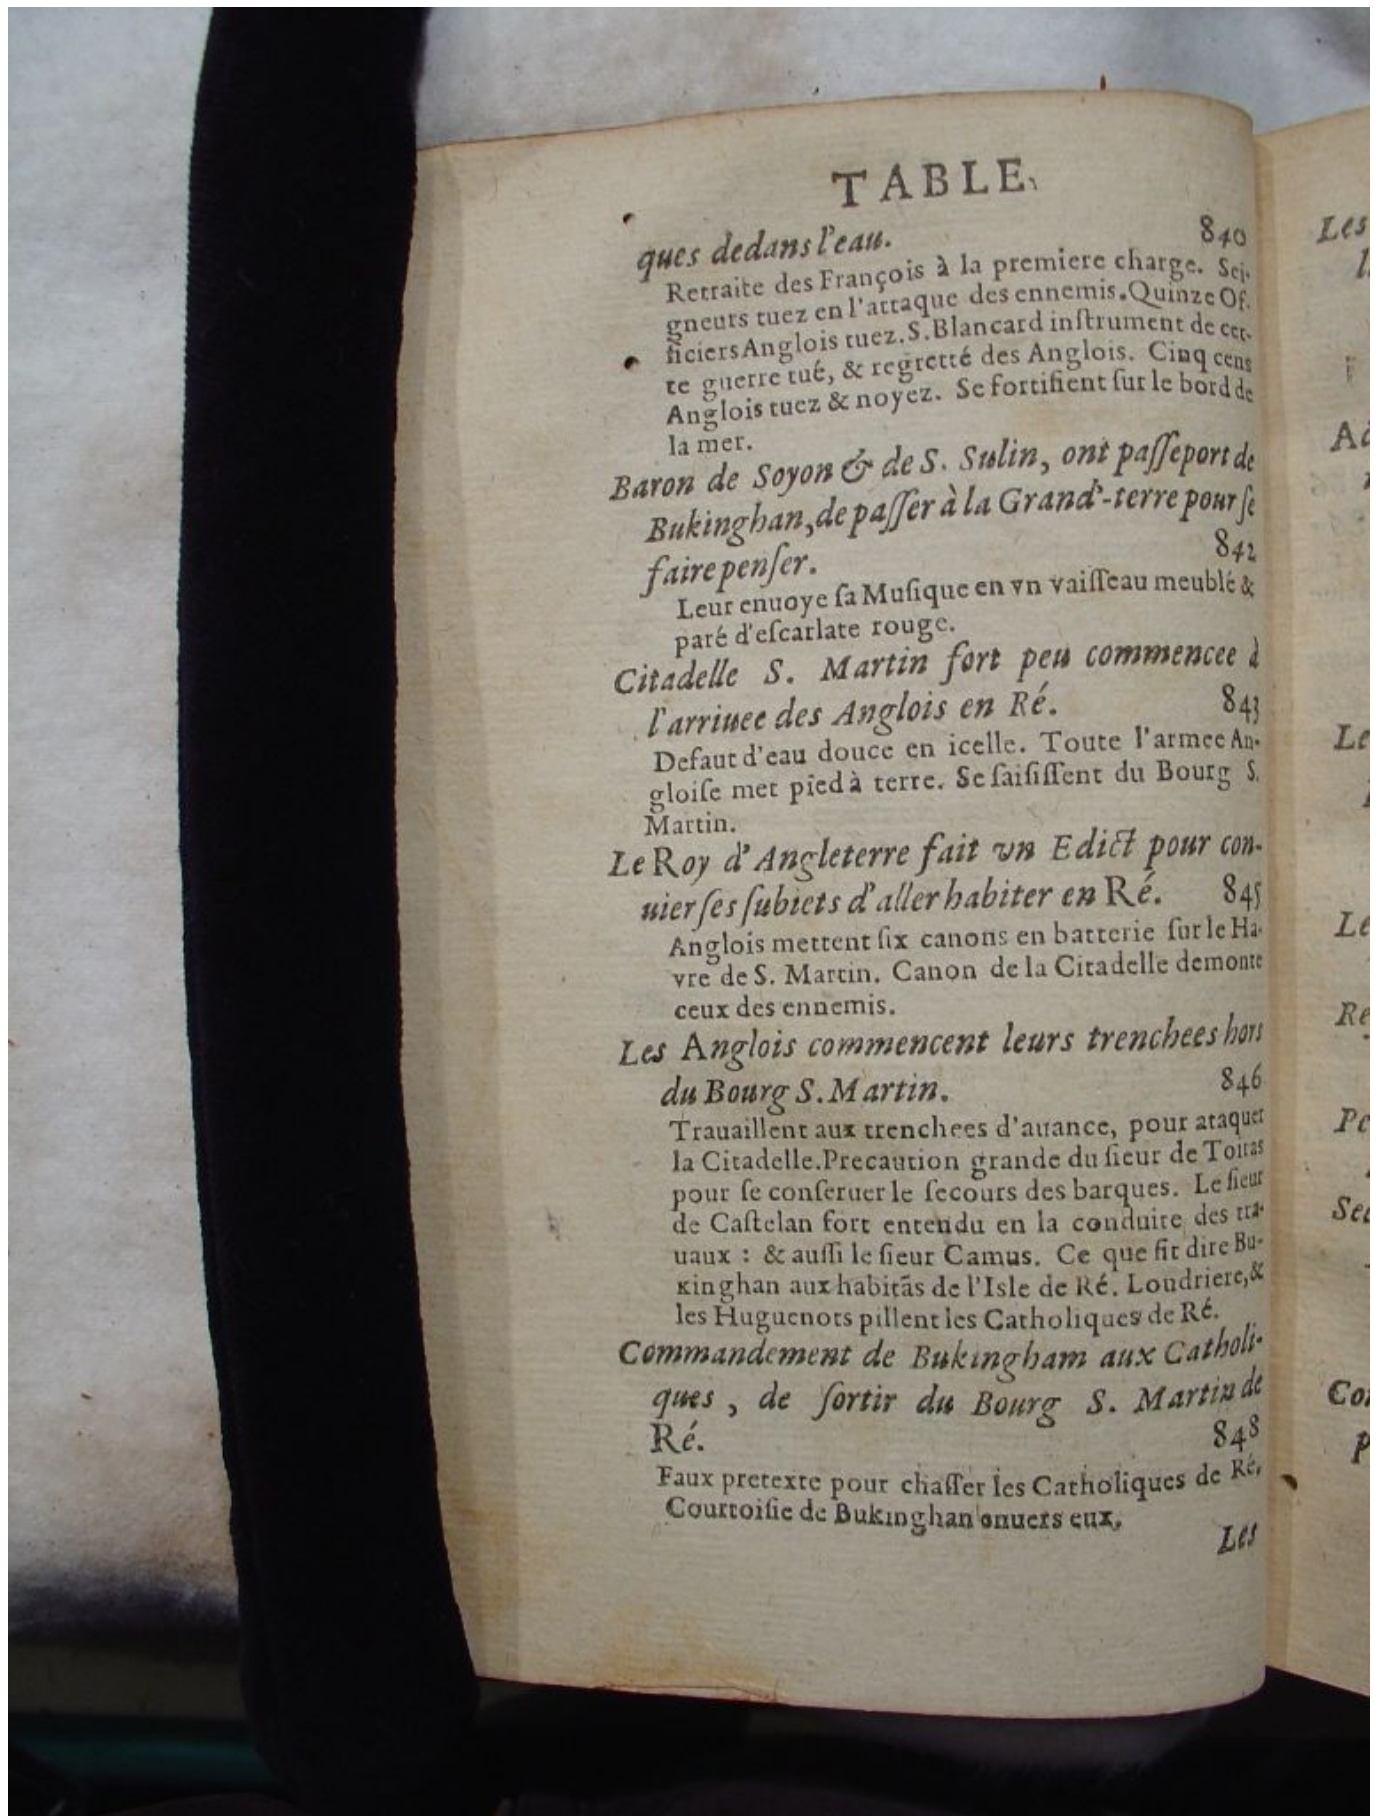 TABLE.
ques dedans l'eau. 840
Retraite des François à la premiere charge. Sei-
gneurs tuez en l'attaque des ennemis. Quinze Of-
ficiers Anglois tuez. S. Blancard inſtrument de cet-
te guerre tué, & regretté des Anglois. Cinq cens
Anglois tuez & noyez. Se fortifient ſur le bord de
la mer.
Baron de Soyon & de S. Sulin, ont paſſeport de
Bukinghan, de paſſer à la Grand'-terre pour ſe
faire penſer. 842
Leur enuoye ſa Muſique en vn vaiſſeau meublé &
paré d'eſcarlate rouge.
Citadelle S. Martin fort peu commencee à
l'arriuee des Anglois en Ré. 843
Defaut d'eau douce en icelle. Toute l'armee An-
gloiſe met pied à terre. Se ſaiſiſſent du Bourg S.
Martin.
Le Roy d'Angleterre fait vn Edict pour con-
uier ſes ſubiets d'aller habiter en Ré. 845
Anglois mettent ſix canons en batterie ſur le Ha-
vre de S. Martin. Canon de la Citadelle demonte
ceux des ennemis.
Les Anglois commencent leurs trenchees hors
du Bourg S. Martin. 846
Trauaillent aux trenchees d'auance, pour ataquer
la Citadelle. Precaution grande du ſieur de Toiras
pour ſe conſeruer le ſecours des barques. Le ſieur
de Caſtelan fort entendu en la conduite des tra-
uaux : & auſſi le ſieur Camus. Ce que fit dire Bu-
kinghan aux habitãs de l'Isle de Ré. Loudriere, &
les Huguenots pillent les Catholiques de Ré.
Commandement de Bukingham aux Catholi-
ques, de ſortir du Bourg S. Martin de
Ré. 848
Faux pretexte pour chaſſer les Catholiques de Ré.
Courtoiſie de Bukinghan enuers eux.
Les
Les
Ad
Le
Le
Re
Sec
Con
p